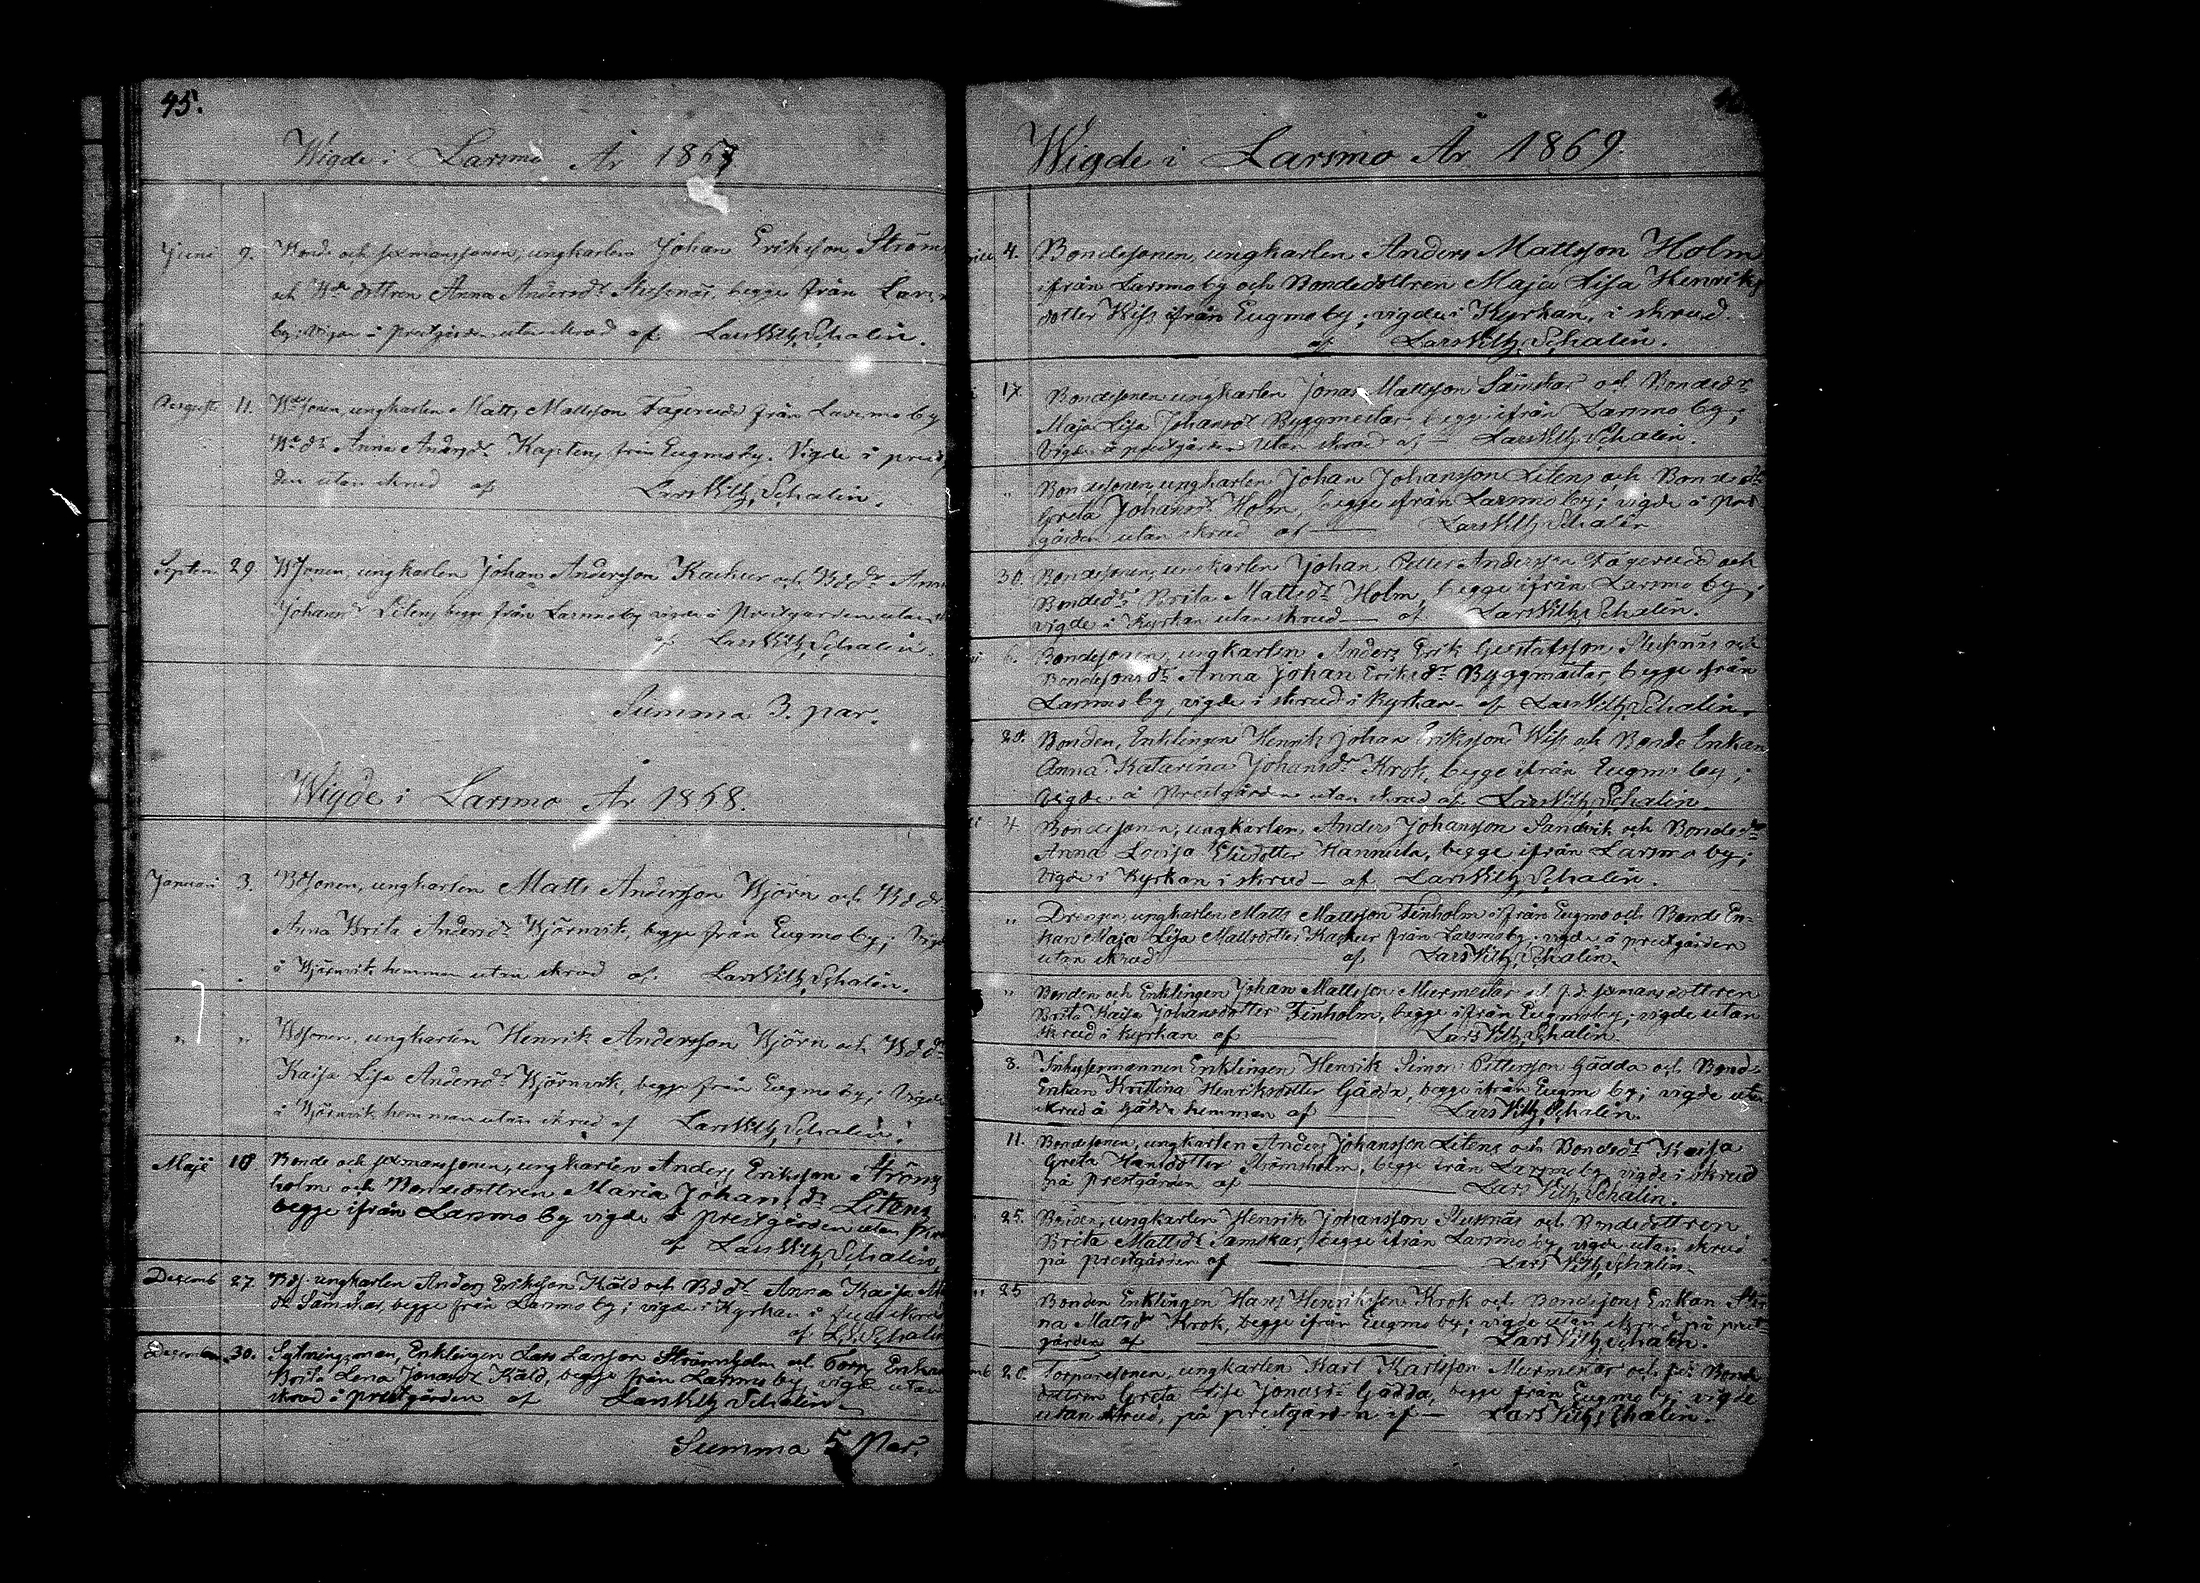 45.
Wigde i Larsmo År 1867
Juni 9. Bonde och sexmanssonen, ungkarlen Johan Eriksson Ströms
och Bde dottren Anna Andersdr Slussnäs, begge från Larsm
by; vigde å prestgården utan skrud af Lars Vilh. Schalin.
August 11. Bdesonen, ungkarlen Matts Mattsson Fagerudd från Larsmo by
Bdedr Anna Andersdr Kaptens från Eugmo by. Vigde i prestg
den utan skrud af Lars Vilh. Schalin.
Septem 29 Bdsonen, ungkarlen Johan Andersson Kackur och Bddr Anna
Johansdr Litens begge från Larsmo by vigde å Prestgården utan sk
af Lars Vilh. Schalin.
Summa 3. par.
Wigde i Larsmo År 1868.
Januari 3. Bdsonen, ungkarlen Matts Andersson Björn och Bddr
Anna Brita Andersdr Björnvik, begge från Eugmo by; Vigde
å Björnvik hemman utan skrud af Lars Vilh. Schalin.
" " Bdsonen, ungkarlen Henrik Andersson Björn och Bddr
Kaisa Lisa Andersdr Björnvik, begge från Eugmo by; Vigde
å Björnvik hemman utan skrud af Lars Vilh. Schalin.
Maji 18 Bonde och sexmanssonen, ungkarlen Anders Eriksson Ströms
holm och Bondedottren Maria Johansdr Litens
begge ifrån Larsmo by vigde å prestgården utan skru
af Lars Vilh. Schalin.
Decemb 27. Bds. ungkarlen Anders Eriksson Käld och Bddr Anna Kaisa M
dr Sämskar, begge från Larsmo by; vigde i Kyrkan i full skrud
af L. V. Schalin
December 30. Sytningsman, Enklingen Lars Larsson Strömsholm och Torp Enkan
Brita Lena Jonasdr Käld, begge från Larsmo by vigde utan
skrud i prestgården af Lars Vilh. Schalin.
Summa 5 Par.
Wigde i Larsmo År 1869.
4. Bondesonen, ungkarlen Anders Mattsson Holm
ifrån Larsmo by och Bondedottren Maja Lisa Henriks
dotter Wiss ifrån Eugmo by; vigde i Kyrkan, i skrud.
af Lars Vilh. Schalin.
17. Bondesonen ungkarlen Jonas Mattsson Sämskar och Bondedr
Maja Lisa Johansdr Byggmestar begge ifrån Larsmo by;
Vigde å prestgården utan skrud af Lars Vilh. Schalin.
" Bondesonen, ungkarlen Johan Johansson Litens och Bondedr
Greta Johansdr Holm, begge ifrån Larsmo by; vigde å Prest
gården utan skrud af Lars Vilh. Schalin
30. Bondesonen, ungkarlen Johan Petter Andersson Fagerudd och
Bondedr Brita Mattsdr Holm, begge ifrån Larsmo by;
vigde i Kyrkan utan skrud af Lars Vilh. Schalin.
6. Bondesonen, ungkarlen Anders Erik Gustafsson Slussnäs och
Bondesonsdr Anna Johan Eriksdr Byggmästar, begge ifrån
Larsmo by, vigde i skrud i Kyrkan af Lars Vilh. Schalin.
20. Bonden, Enklingen Henrik Johan Eriksson Wiss och Bonde Enkan
Anna Katarina Johansdr Krok, begge ifrån Eugmo by;
Vigde å Prestgården utan skrud af Lars Vilh. Schalin.
4. Bondesonen, ungkarlen Anders Johansson Sandvik och Bondedr
Anna Lovisa Eliedotter Hannula, begge ifrån Larsmo by;
Vigde i Kyrkan i skrud af Lars Vilh. Schalin.
" Drengen, ungkarlen Matts Mattsson Finholm ifrån Eugmo och Bonde En-
kan Maja Lisa Mattsdotter Kackur från Larsmo by; vigde å prestgården
utan skrud af Lars Vilh. Schalin.
" Bonden och Enklingen Johan Mattsson Murmestar och f. d. sexmansdottren
Brita Kaisa Johansdotter Finholm, begge ifrån Eugmo by; vigde utan
skrud i kyrkan af Lars Vilh. Schalin.
8. Inhysesmannen Enklingen Henrik Simon Pettersson Gädda och Bonde
Enkan Kristina Henriksdotter Gädda, begge ifrån Eugmo by; vigde utan
skrud å Gädda hemman af Lars Vilh. Schalin.
11. Bondesonen, ungkarlen Anders Johansson Litens och Bondedr Kaisa
Greta Hansdotter Strömsholm, begge från Larsmo by, vigde i skrud
på prestgården af Lars Vilh. Schalin.
25. Bonden, ungkarlen Henrik Johansson Slussnäs och Bondedottren
Brita Mattsdr Sämskar, begge ifrån Larsmo by, vigde utan skrud
på prestgården af Lars Vilh. Schalin.
" 25 Bonden Enklingen Hans Henriksson Krok och Bondesons Enkan
na Mattsdr Krok, begge ifrån Eugmo by; vigde utan skrud på prest
gården af Lars Vilh. Schalin.
26. Torparesonen, ungkarlen Karl Karlsson Murmestar och Bonde
dottren Greta Lisa Jonasdr Gädda, begge från Eugmo by; vigde
utan skrud, på prestgården af Lars Vilh. Schalin.